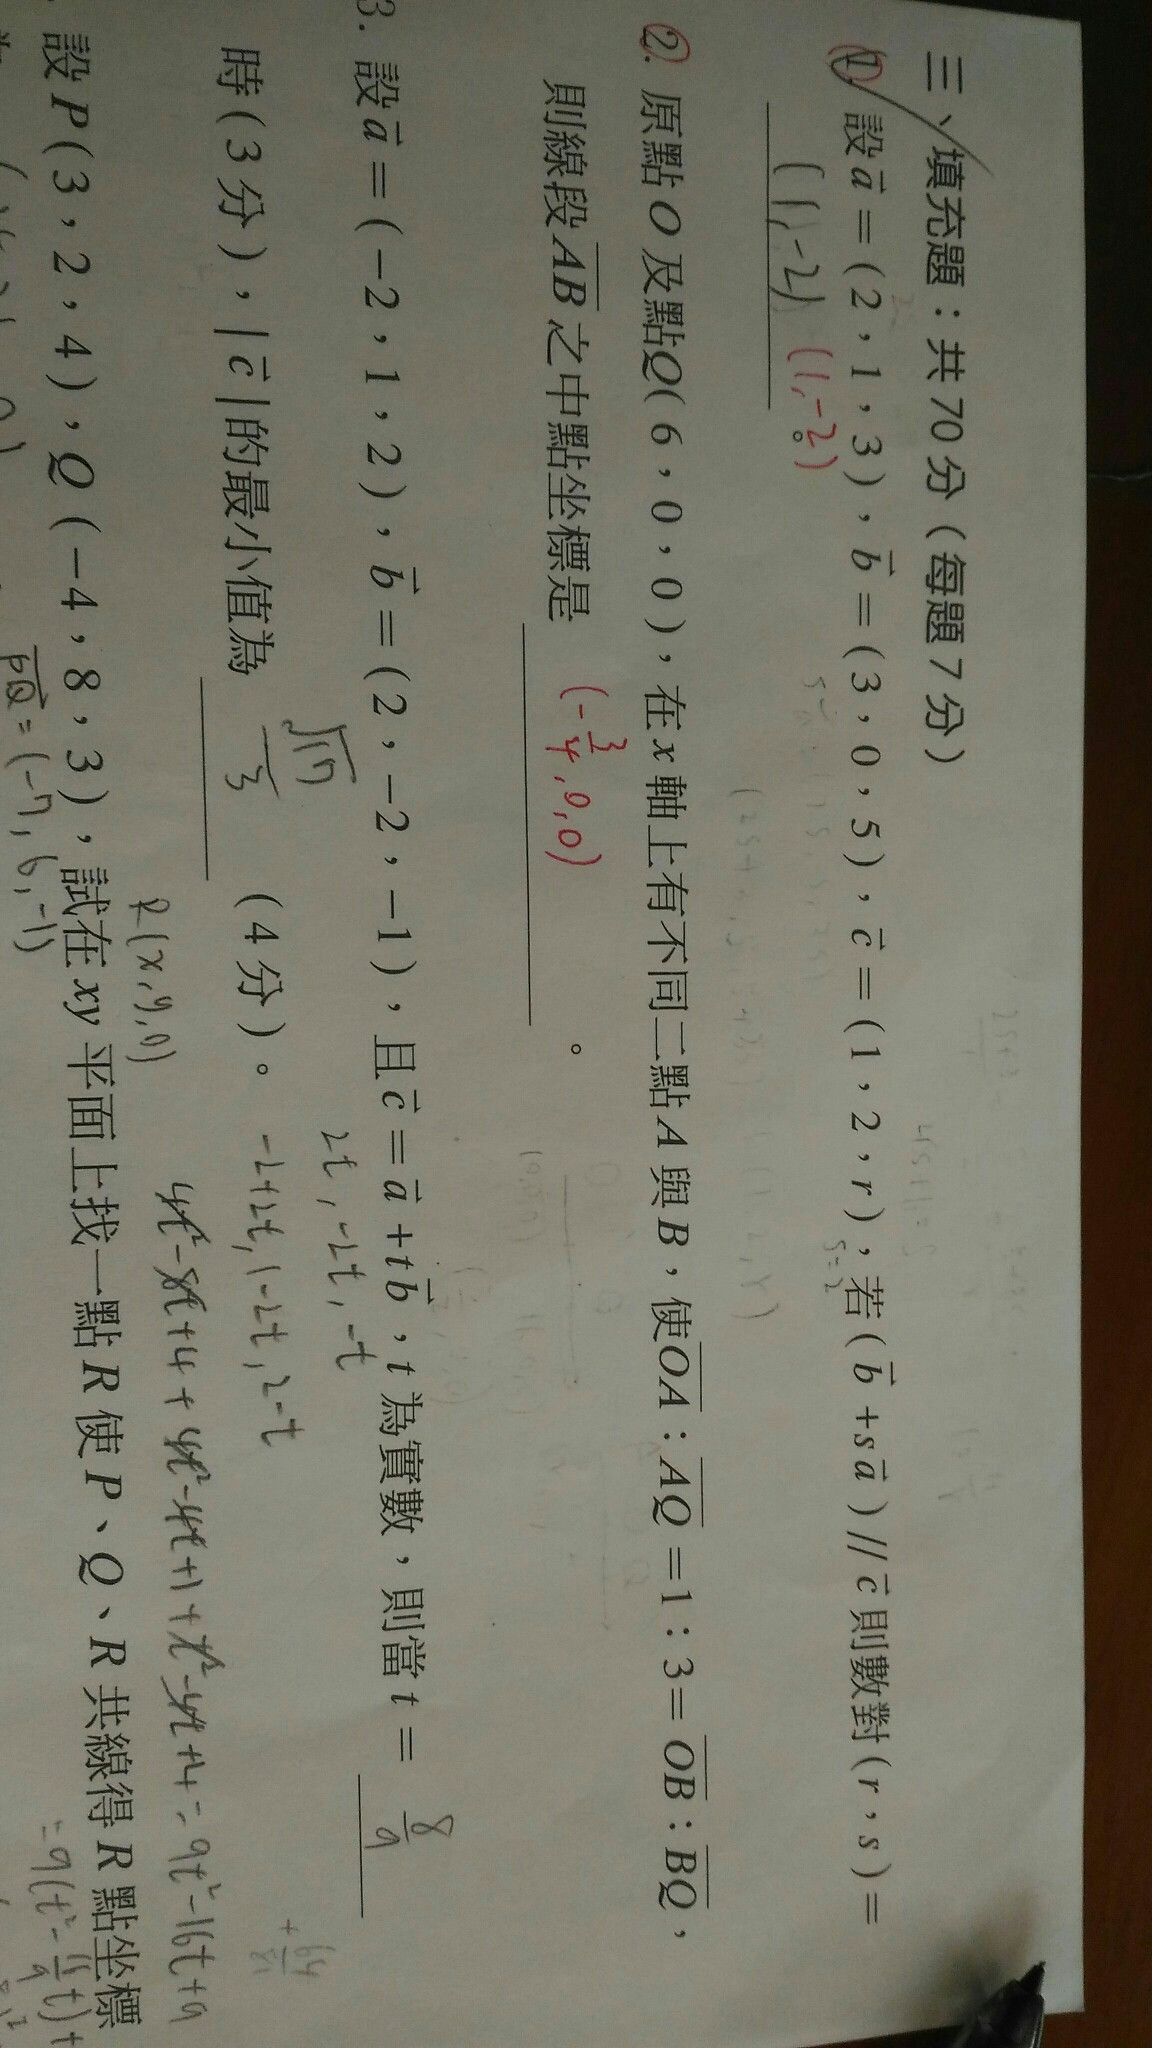 三、填充題：共70分（每題7分）
1. 設a⃗=(2,1,3)，b⃗=(3,0,5)，c⃗=(1,2,r)，若(b⃗+sa⃗)//c⃗則數對(r,s)=
(1,-2) (1,-2)。
2. 原點O及點Q(6,0,0)，在x軸上有不同二點A與B，使OA：AQ=1：3=OB：BQ，
則線段AB之中點坐標是 (-3/4,0,0) 。
3. 設a⃗=(-2,1,2)，b⃗=(2,-2,-1)，且c⃗=a⃗+tb⃗，t為實數，則當t= 8/9
2t,-2t,-t
時(3分)，|c⃗|的最小值為 √17/3 (4分)。
-2+2t,1-2t,2-t
R(x,y,0)
4t²-8t+4+4t²-4t+1+t²-4t+4=9t²-16t+9
設P(3,2,4)，Q(-4,8,3)，試在xy平面上找一點R使P、Q、R共線得R點坐標
PQ=(-7,6,-1)